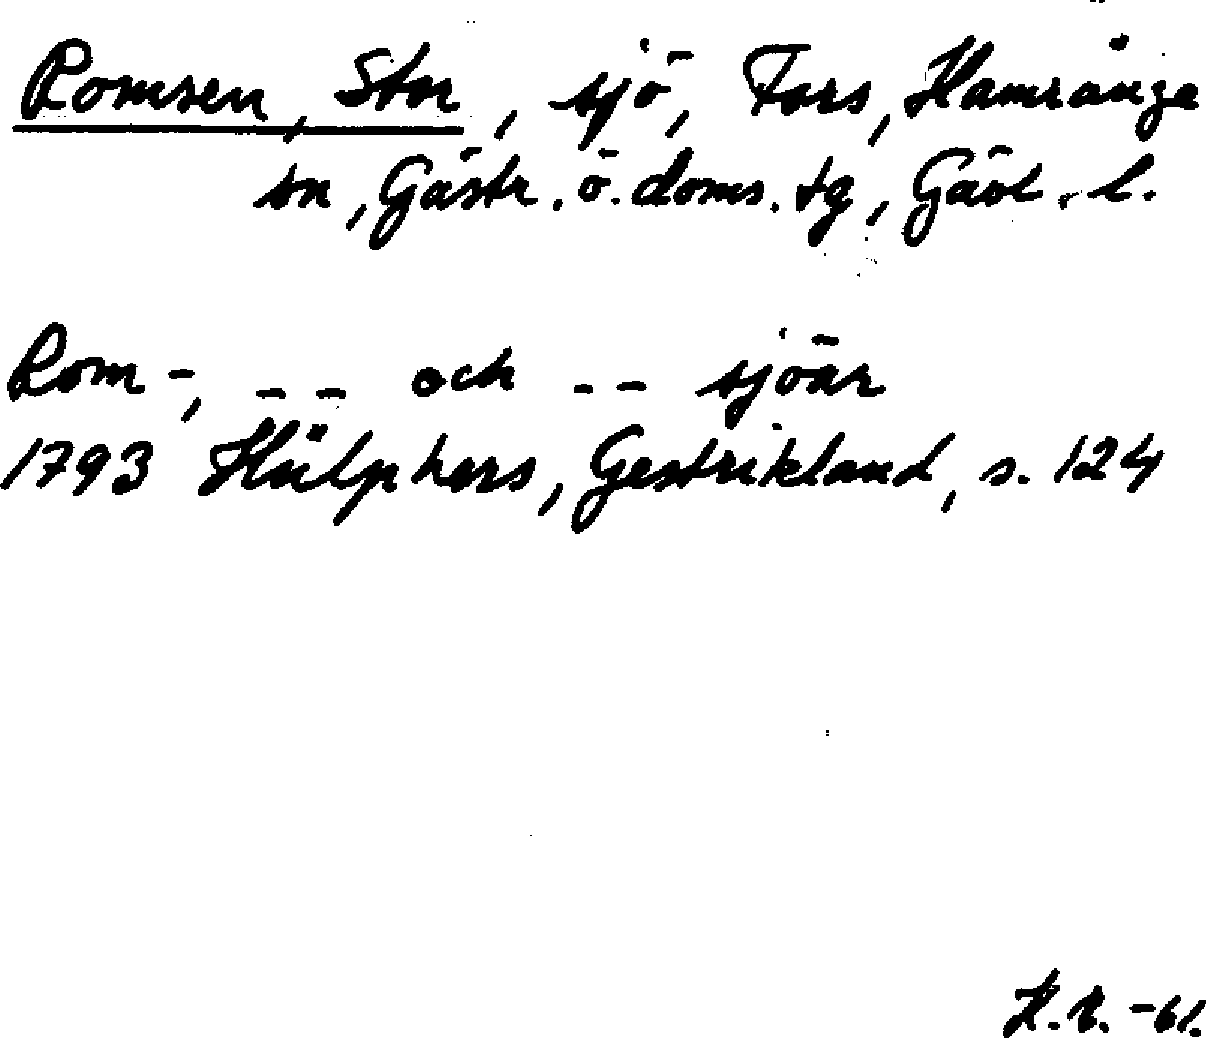 Romsen, Stor, sjö, Fors, Hamrånge
sn, Gästr. ö. doms. tg, Gävl. l.
Rom-, -- och -- sjöar
1793 Hülphers, Gestrikland, s. 124
-61.